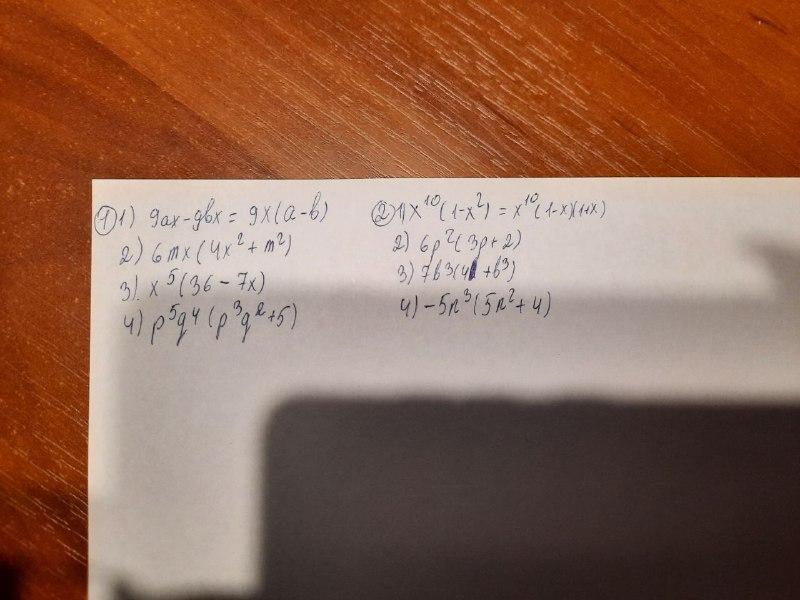 ① 1) 9ax-9bx = 9x(a-b)
2) 6mx(4x²+m²)
3) x⁵(36-7x)
4) p⁵q⁴(p³q²+5)
② 1) x¹⁰(1-x²) = x¹⁰(1-x)(1+x)
2) 6p²(3p+2)
3) 7b³(4 +b³)
4) -5n³(5n²+4)